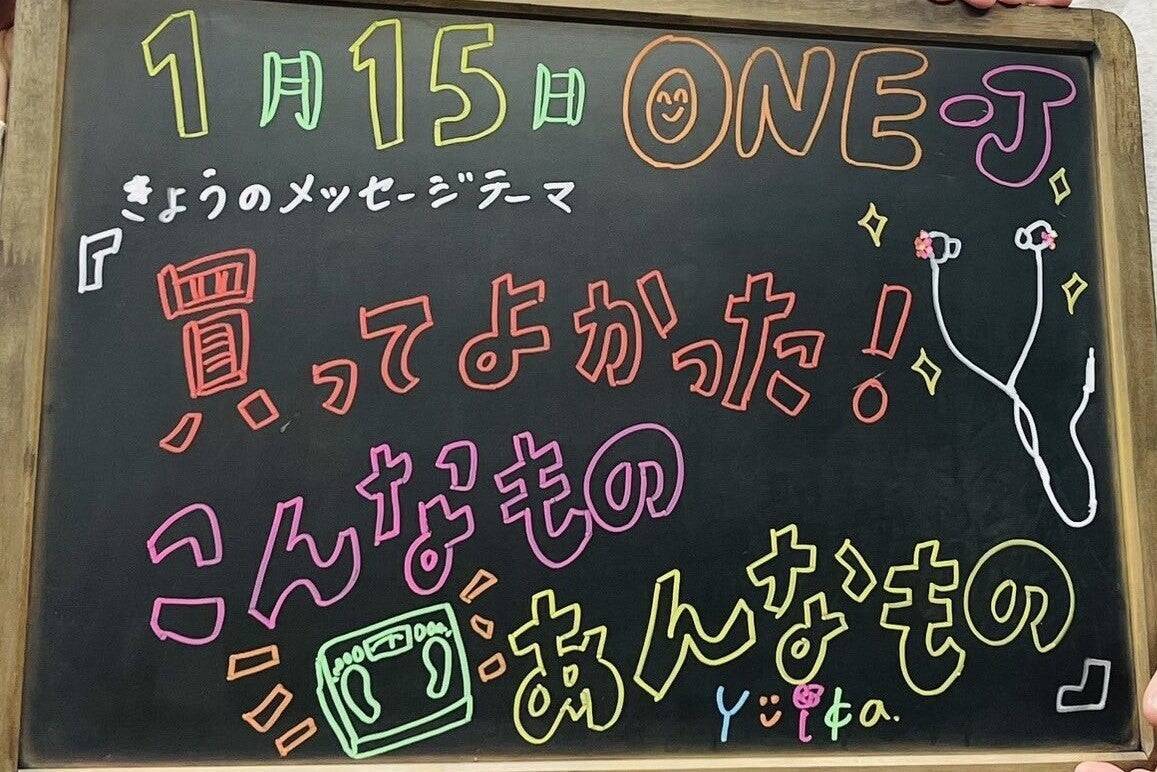 1月15日 ONE-J
きょうのメッセージテーマ
『買ってよかった！
こんなもの
あんなもの』
Yuika.